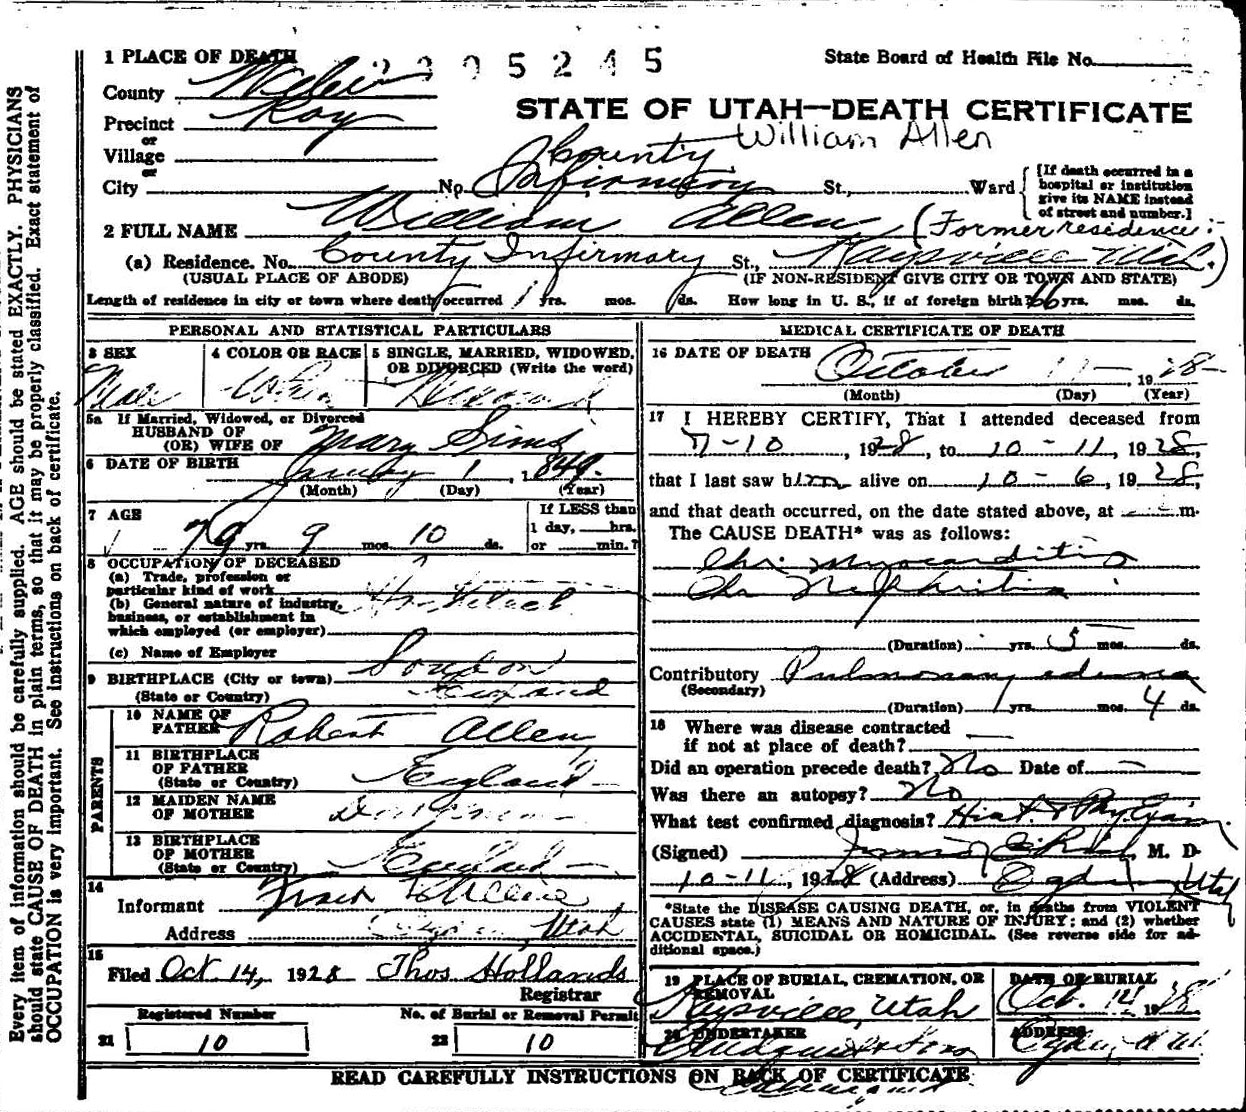 1 PLACE OF DEATH
2905245
State Board of Health File No.
County Weber
STATE OF UTAH—DEATH CERTIFICATE
Precinct Roy
William Allen
or
Village
or
County
City No. Infirmary St., Ward
[If death occurred in a
hospital or institution
give its NAME instead
of street and number.]
2 FULL NAME William Allen (Former residence:-
(a) Residence. No. County Infirmary St., Kaysville Utah.)
(USUAL PLACE OF ABODE) (IF NON-RESIDENT GIVE CITY OR TOWN AND STATE)
Length of residence in city or town where death occurred 1 yrs. mos. ds. How long in U. S., if of foreign birth? 66 yrs. mos. ds.
PERSONAL AND STATISTICAL PARTICULARS
3 SEX
Male
4 COLOR OR RACE
White
5 SINGLE, MARRIED, WIDOWED,
OR DIVORCED (Write the word)
5a If Married, Widowed, or Divorced
HUSBAND OF
(OR) WIFE OF Mary Sims
6 DATE OF BIRTH January 1, 1849.
(Month) (Day) (Year)
7 AGE
79 yrs. 9 mos. 10 ds.
If LESS than
1 day, hrs.
or min.?
8 OCCUPATION OF DECEASED
(a) Trade, profession or
particular kind of work
(b) General nature of industry,
business, or establishment in
which employed (or employer)
(c) Name of Employer
9 BIRTHPLACE (City or town) London
(State or Country) England
PARENTS
10 NAME OF
FATHER Robert Allen
11 BIRTHPLACE
OF FATHER
(State or Country) England
12 MAIDEN NAME
OF MOTHER Don't know
13 BIRTHPLACE
OF MOTHER
(State or Country) England
14
Informant
Address Utah
15
Filed Oct. 14, 1928 Thos Hollands
Registrar
Registered Number
21 10
No. of Burial or Removal Permit
22 10
MEDICAL CERTIFICATE OF DEATH
16 DATE OF DEATH
October 11 - , 1928-
(Month) (Day) (Year)
17 I HEREBY CERTIFY, That I attended deceased from
7-10, 1928, to 10-11, 1928,
that I last saw him alive on 10-6, 1928,
and that death occurred, on the date stated above, at m.
The CAUSE DEATH* was as follows:
Chr. Myocarditis
Chr Nephritis
(Duration) yrs. 5 mos. ds.
Contributory Pulmonary edema
(Secondary)
(Duration) yrs. mos. 4 ds.
18 Where was disease contracted
if not at place of death?
Did an operation precede death? No Date of
Was there an autopsy? No
What test confirmed diagnosis? Hist. & Phy. Exam.
(Signed) M. D.
10-11, 1928 (Address) Ogden, Utah
*State the DISEASE CAUSING DEATH, or, in deaths from VIOLENT
CAUSES state (1) MEANS AND NATURE OF INJURY; and (2) whether
ACCIDENTAL, SUICIDAL OR HOMICIDAL. (See reverse side for ad-
ditional space.)
19 PLACE OF BURIAL, CREMATION, OR
REMOVAL
Kaysville, Utah
DATE OF BURIAL
Oct. 14 1928
20 UNDERTAKER
& Sons
ADDRESS
Ogden,
READ CAREFULLY INSTRUCTIONS ON BACK OF CERTIFICATE
Every item of information should be carefully supplied. AGE should be stated EXACTLY. PHYSICIANS
should state CAUSE OF DEATH in plain terms, so that it may be properly classified. Exact statement of
OCCUPATION is very important. See instructions on back of certificate.